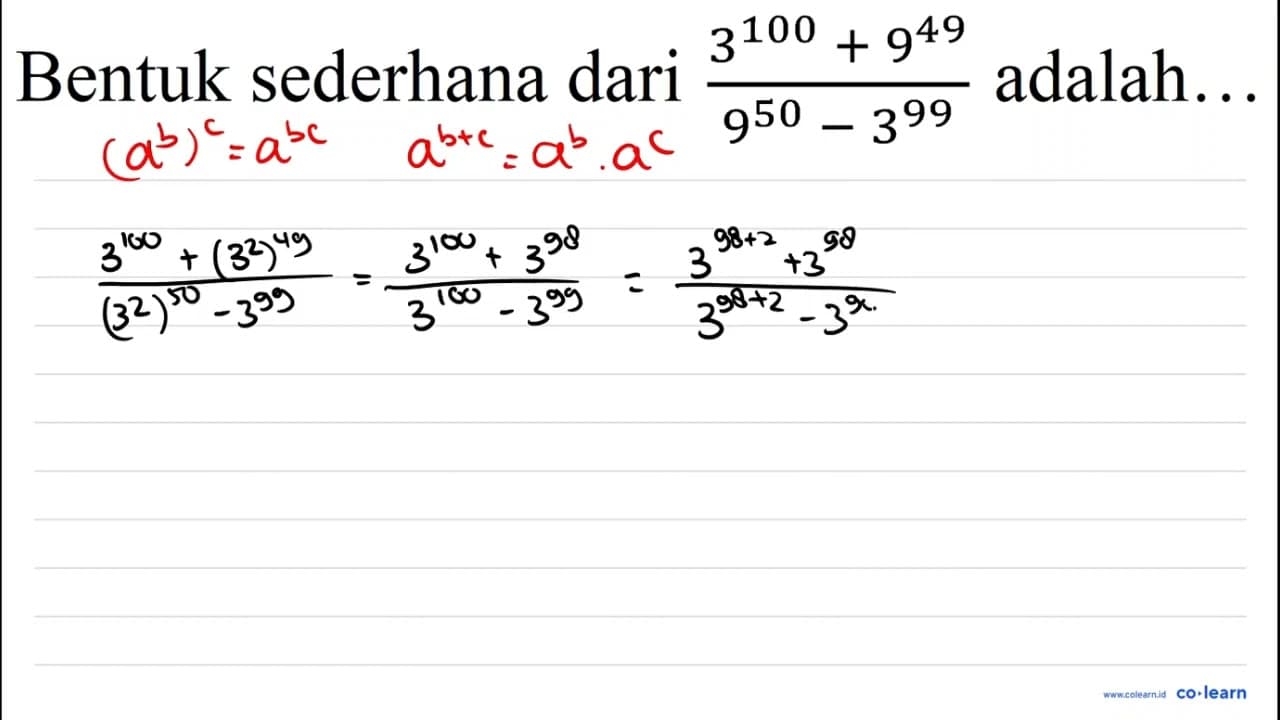 Bentuk sederhana dari \frac{3^{100} + 9^{49}}{9^{50} - 3^{99}} adalah...
(a^b)^c = a^{bc} a^{b+c} = a^b . a^c
\frac{3^{100} + (3^2)^{49}}{(3^2)^{50} - 3^{99}} = \frac{3^{100} + 3^{98}}{3^{100} - 3^{99}} = \frac{3^{98+2} + 3^{98}}{3^{98+2} - 3^{9}}
www.colearn.id co·learn